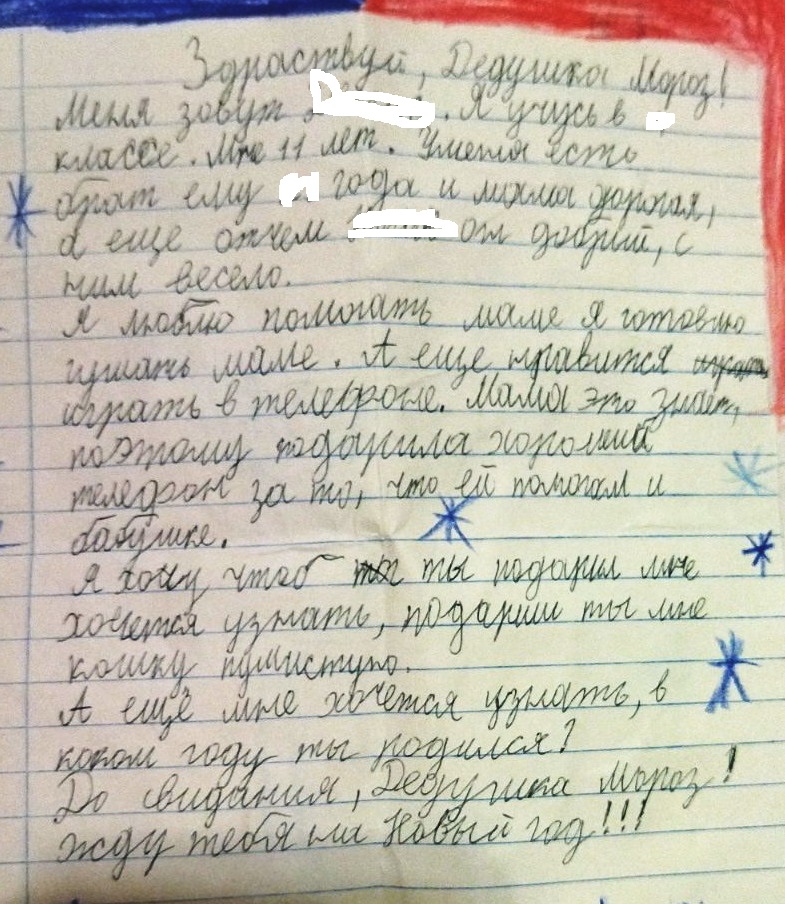 Здраствуй, Дедушка Мороз!
Меня зовут . Я учусь в
классе. Мне 11 лет. Уменя есть
брат ему года и мама дорогая,
а еще отчем он добрий, с
ним весело.
Я люблю помогать маме я готовлю
кушать маме. А еще нравится
играть в телефоне. Мама это знает,
поэтому подарила хороший
телефон за то, что ей помогал и
бабушке.
Я хочу чтоб ты подарил мне
хочется узнать, подариш ты мне
кошку пушистую.
А ещё мне хочется узнать, в
каком году ты родился?
До свидания, Дедушка мороз!
жду тебя на Новый год!!!